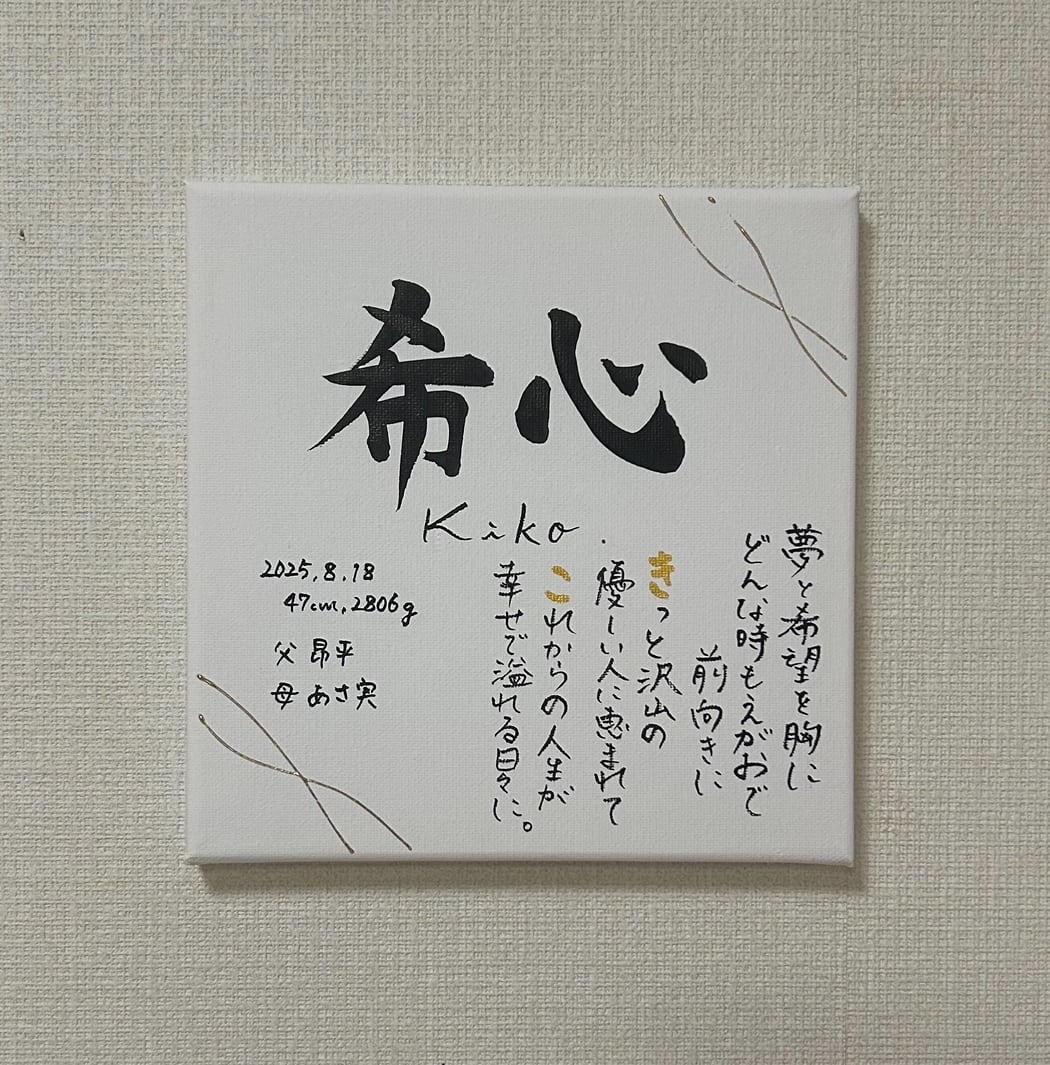 希心
Kiko.
夢と希望を胸に
どんな時もえがおで
前向きに
きっと沢山の
優しい人に恵まれて
これからの人生が
幸せで溢れる日々に。
2025.8.18
47cm, 2806g
父 昂平
母 あさ実